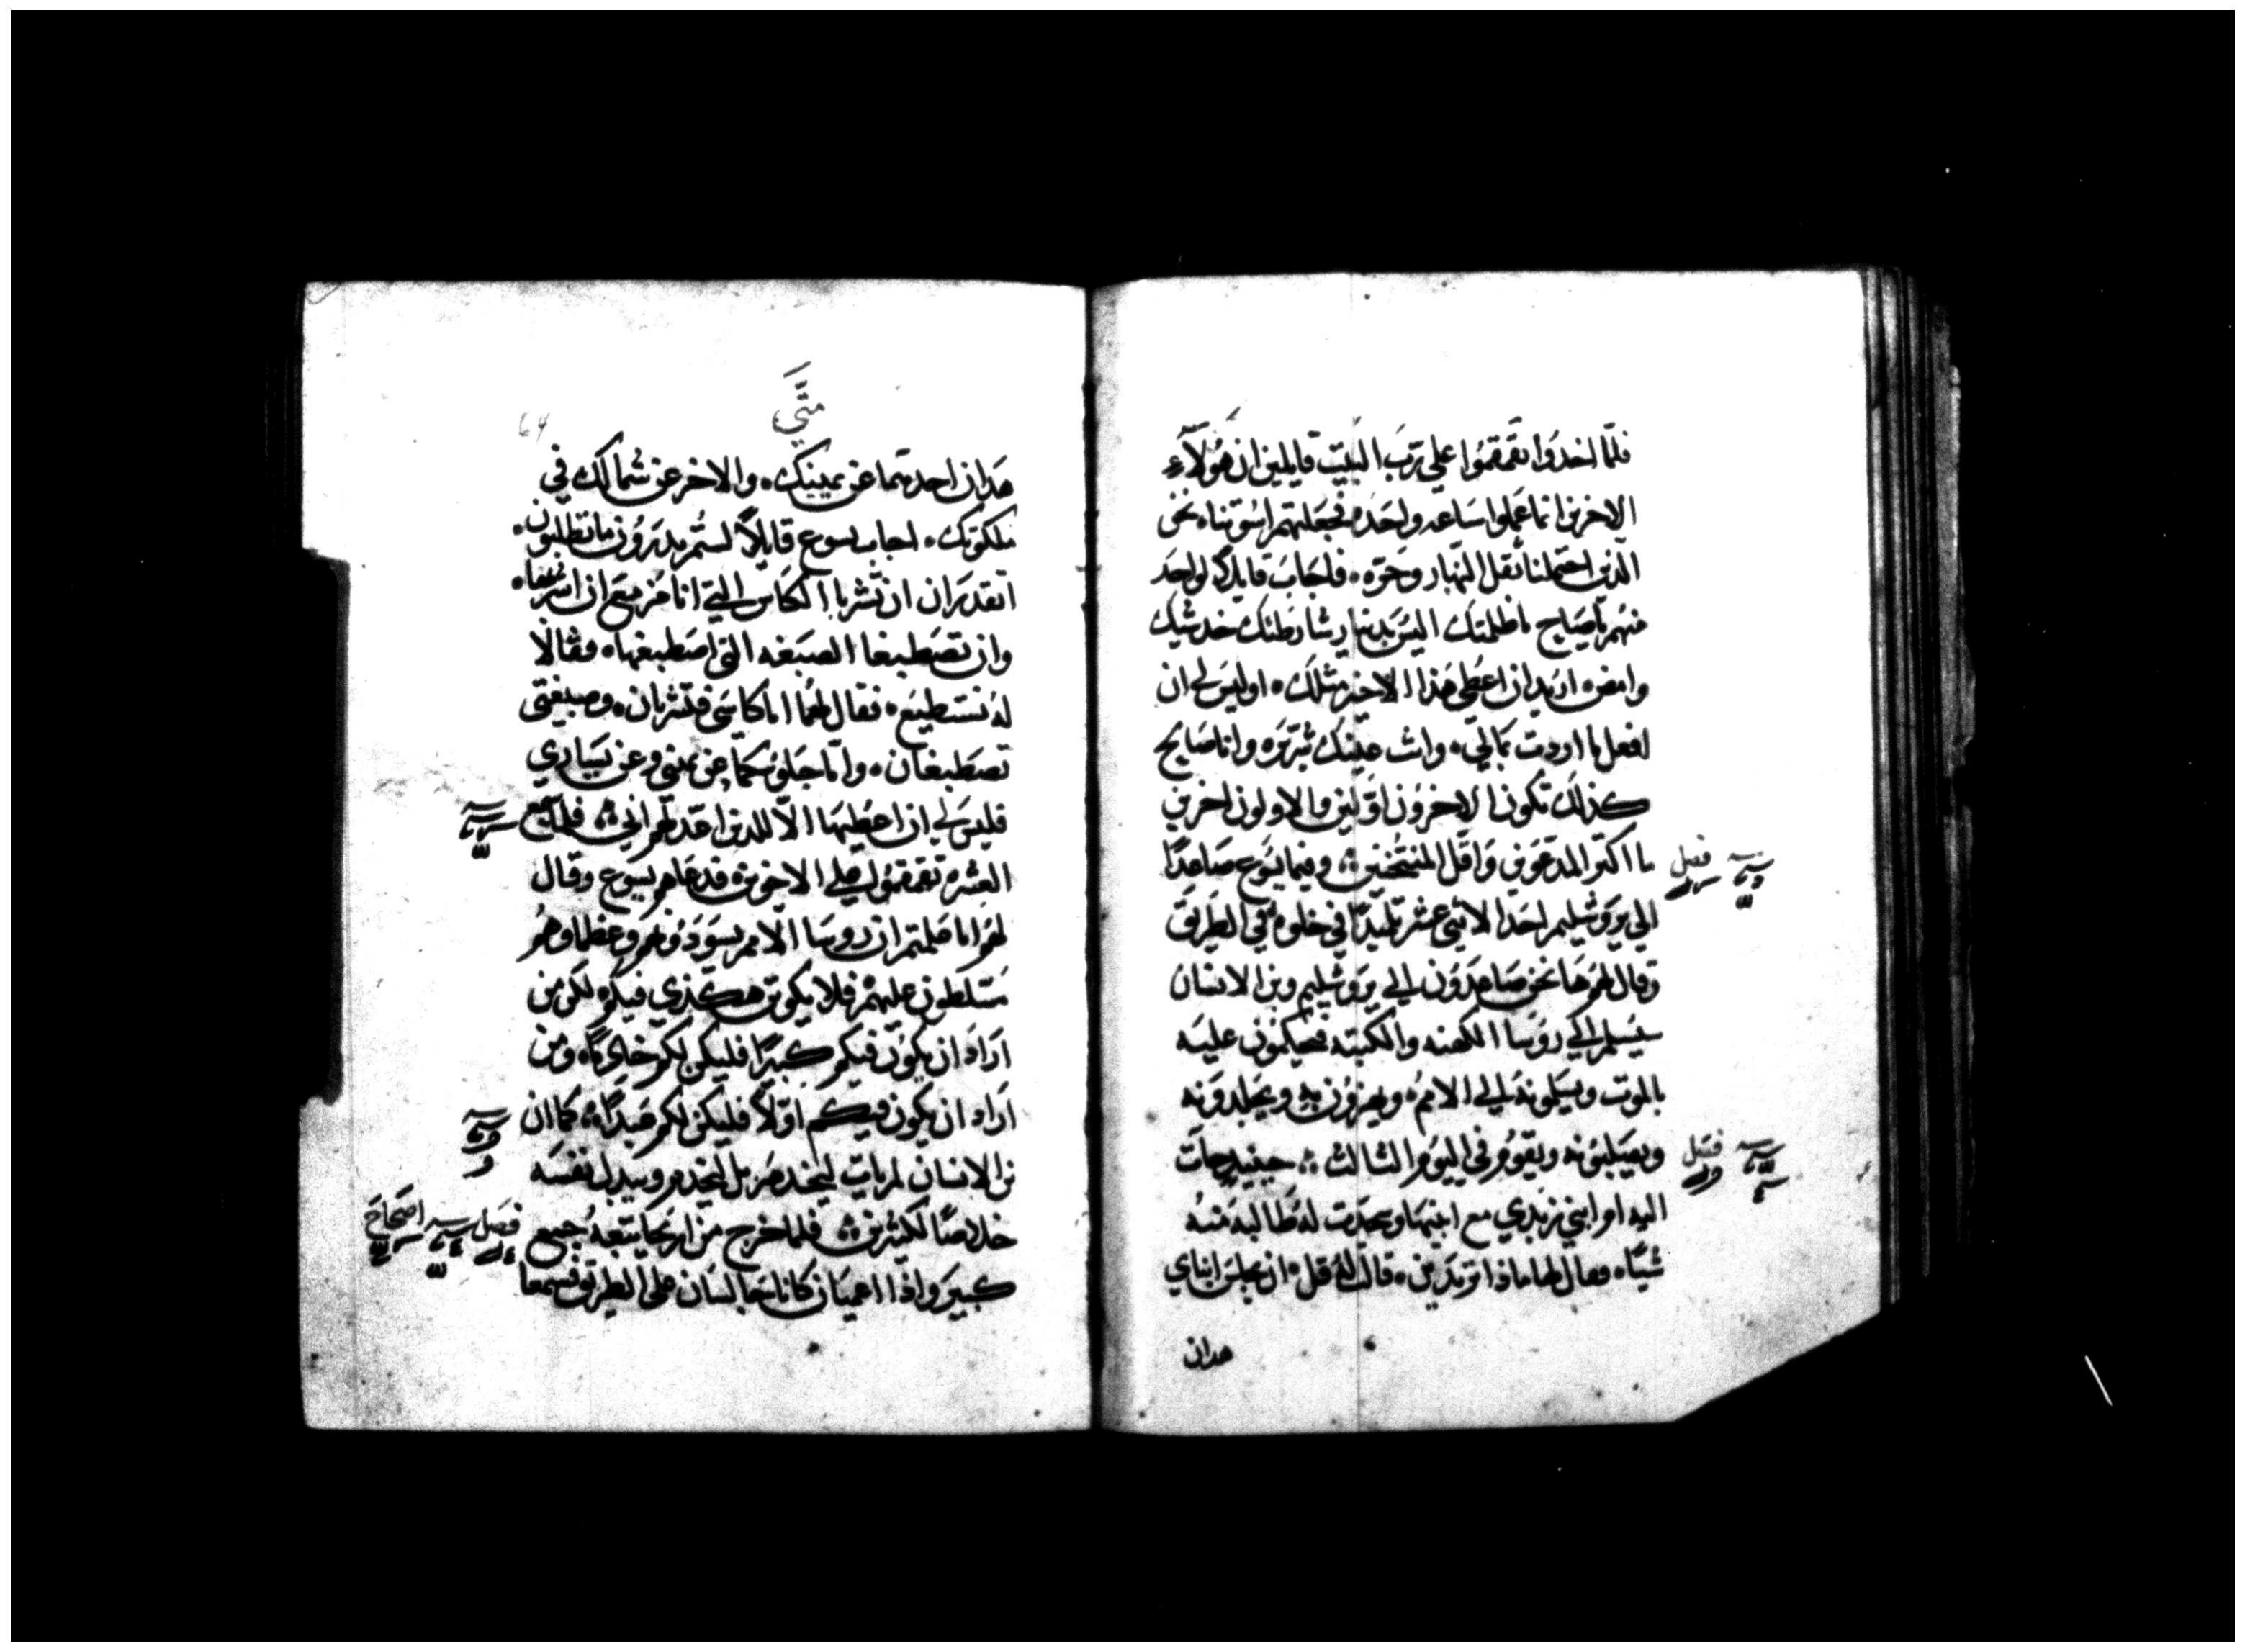 فلمّا اخدوا تقمقموا على ربّ البيت قايلين ان هَولآء
الاخرين انما عملوا ساعه واحده فجعلتهم اسوتنا ه نحن
الدين احتملنا ثقل النهار وحرّه ه فاجاب قايلاً لواحد
منهم يا صاح ما ظلمتك اليس بدينار شارطتك خد شيك
وامض ه اريد ان اعطى هذا الاخير مثلك ه اوليس لى ان
افعل ما اردت بمالي ه وانت عينك شريّره وانا صالح
كذلك تكون الاخرون اوّلين والاولون اخرين
ما اكتر المدعوين واقل المنتخبين ؞ وفيما يسوع صاعدًا
فصل
الي يروشليم اخد الاثني عشر تلميدًا في خلوه في الطريق
وقال لهم ها نحن صاعدون الي يروشليم وبن الانسان
سيُسلم الي روسا الكهنه والكتبه فيحكمون عليه
بالموت ويسلمونه الي الامم ه ويهزون به ويجلدونه
ويصلبونه ويقوم في اليوم الثالث ؞ حينيد جات
فصل
اليه ام ابني زبدي مع ابنيها وسجدت له طالبه منه
شيًا ه فقال لها ماذا تريدين ه قالت له قل ه ان يجلس ابناي
هدان
متّي
64
هدان احدهما عن يمينك ه والاخر عن شمالك في
ملكوتك ه اجاب يسوع قايلاً لستم تدرون ما تطلبون ه
اتقدران ان تشربا الكاس التي انا مزمع ان اشربها ه
وان تصطبغا الصبغه التي اصطبغها ه فقالا
له نستطيع ه فقال لهما اما كاسي فتشربان ه وصبغتي
تصطبغان ه وامّا جلوسكما عن يميني وعن يساري
فليس لي ان اعطيها الاّ للدين اعد لهم ابي ؞ فلما سمع
العشره تقمقموا على الاخوين ه فدعاهم يسوع وقال
لهم اما علمتم ان روسا الامم يسودونهم وعظماوهم
متسلطون عليهم فلا يكون هكذي فيكم لكن من
اراد ان يكون فيكم كبيرًا فليكن لكم خادمًا ه ومن
اراد ان يكون فيكم اوّلاً فليكن لكم عبدًا ه كما ان
بن الانسان لم يات ليُخدم بل ليخدم ويبدل نفسه
خلاصًا لكثيرين ؞ فلما خرج من اريحا يتبعه جميع
فصل اصحاح
كبير واذا اعميان كانا جالسان على الطريق فسمعا